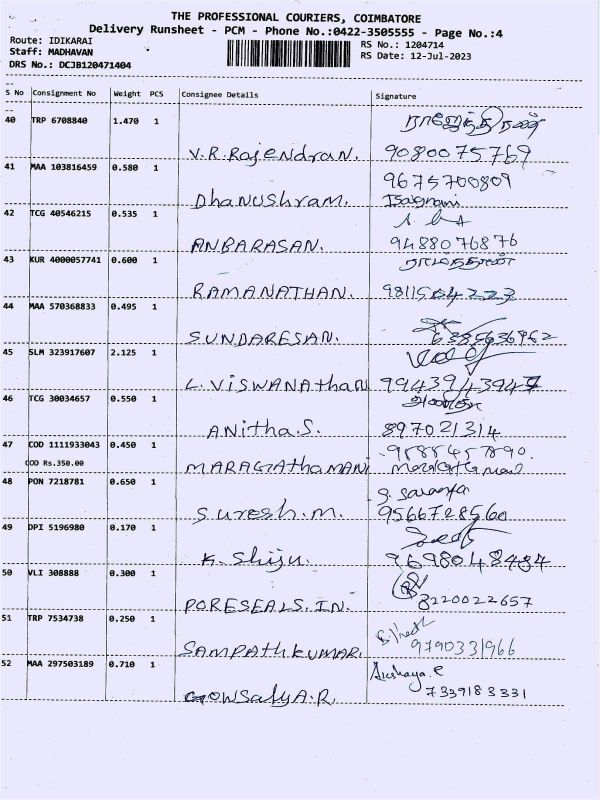 THE PROFESSIONAL COURIERS, COIMBATORE
Delivery Runsheet - PCM - Phone No.:0422-3505555 - Page No.:4
Route: IDIKARAI
Staff: MADHAVAN
DRS No.: DCJB120471404
RS No.: 1204714
RS Date: 12-Jul-2023
S No Consignment No Weight PCS Consignee Details Signature
40 TRP 6708840 1.470 1
V.R.Rajendran. 9080075769
41 MAA 103816459 0.580 1
9675700809
Dhanushram.
42 TCG 40546215 0.535 1
ANBARASAN. 9488076876
43 KUR 4000057741 0.600 1
RAMANATHAN.
44 MAA 570368833 0.495 1
SUNDARESAN.
45 SLM 323917607 2.125 1
L.ViSWANAthan 9943943947
46 TCG 30034657 0.550 1
ANitha.S. 897021314
47 COD 1111933043 0.450 1
COD Rs.350.00
MARAGAthaMANi
48 PON 7218781 0.650 1
S. Saranya
Suresh.M. 9566728560
49 DPI 5196980 0.170 1
K.Shiju. 9698048484
50 VLI 308888 0.300 1
PORESEALS.IN. 8220022657
51 TRP 7534738 0.250 1
SAMPAthkUMAR. 9790331966
52 MAA 297503189 0.710 1
Akshaya.R
GOWSalyA.R. 7339183331